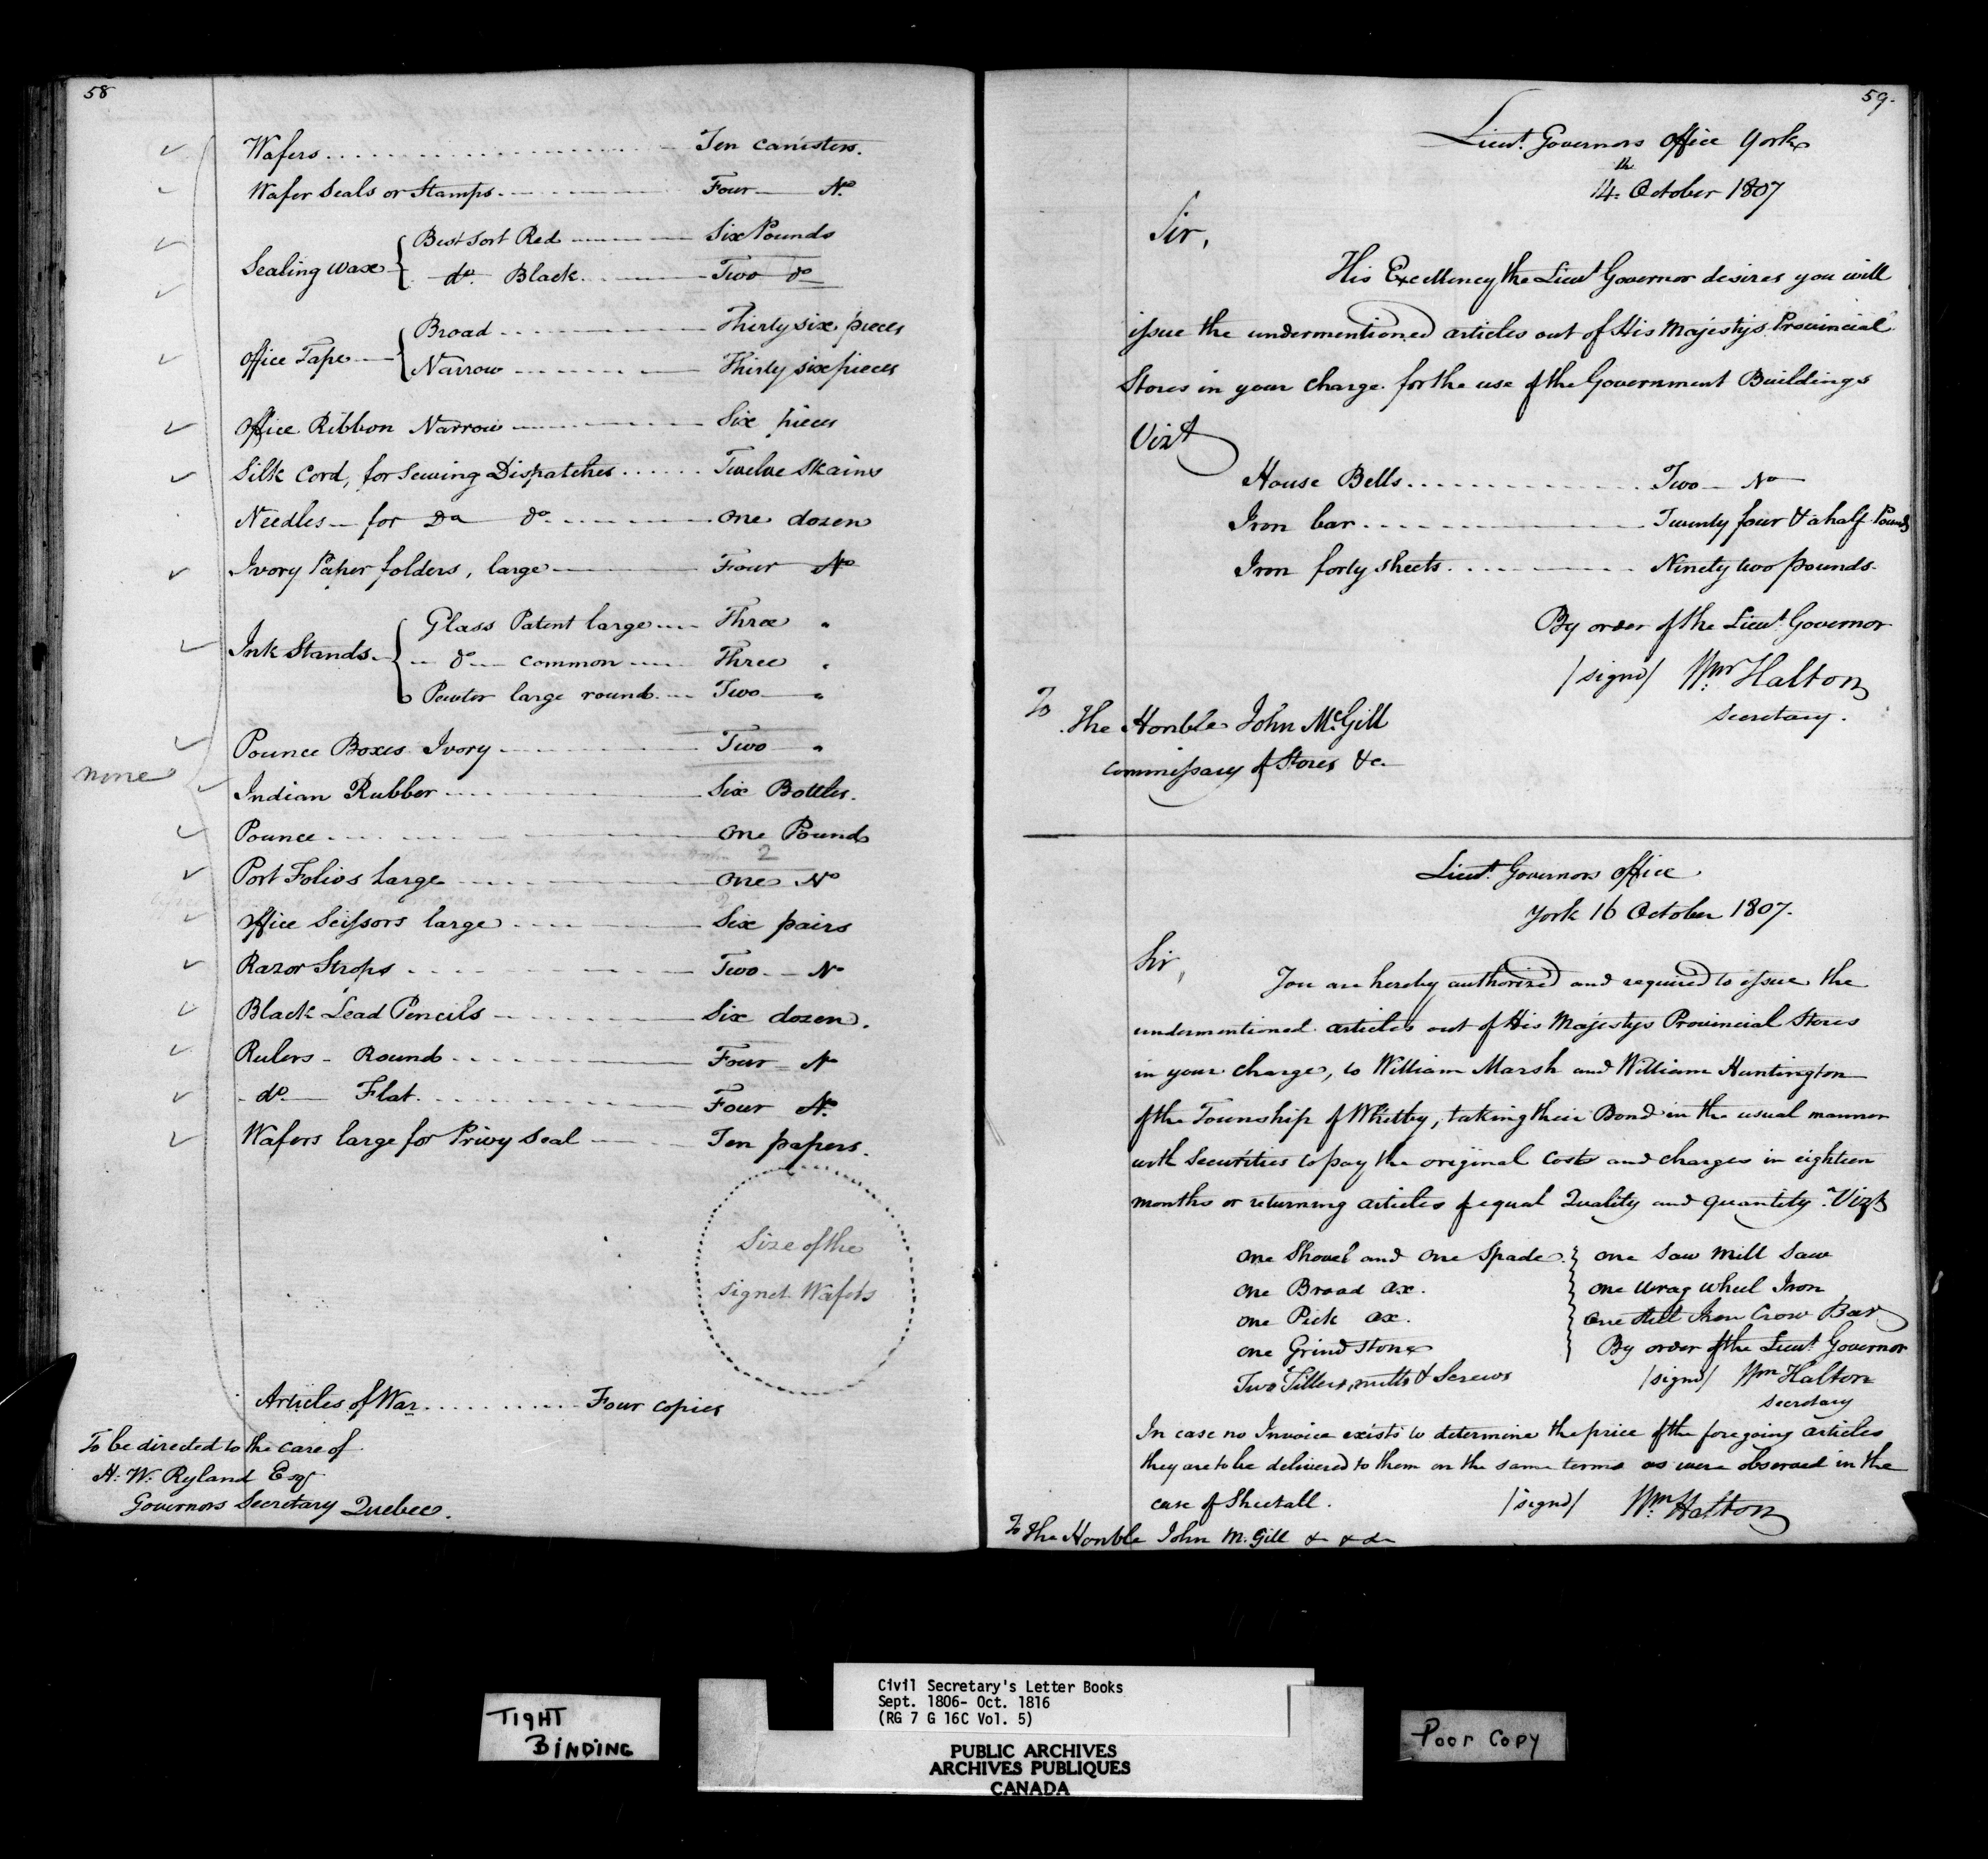 58
Wafers Ten canisters.
Wafer Seals or Stamps Four No
Sealing Wax { Best Sort Red Six Pounds
do. Black Two do
Office Tape { Broad Thirty six pieces
Narrow Thirty six pieces
Office Ribbon Narrow Six pieces
Silk Cord, for Sewing Dispatches Twelve Skains
Needles for Do do One dozen
Ivory Paper folders, large Four No
Ink Stands { Glass Patent large Three "
do common Three "
Pewter large round Two "
Pounce Boxes Ivory Two "
none
Indian Rubber Six Bottles.
Pounce One Pound
2
Port Folios large One No
Office Scissors large Six pairs
Razor Strops Two No
Black Lead Pencils Six dozen.
Rulers - Round Four No
do Flat Four No
Wafers large for Privy Seal Ten papers.
Size of the
Signet Wafers
Articles of War Four copies
To be directed to the care of
H. W. Ryland Esqr
Governors Secretary Quebec.
59.
Lieut. Governors Office York
14th October 1807
Sir,
His Excellency the Lieut Governor desires you will
issue the undermentioned articles out of His Majestys Provincial
Stores in your charge for the use of the Government Buildings
Vizt
House Bells Two No
Iron bar Twenty four & a half Pounds
Iron forty sheets Ninety two pounds.
By order of the Lieut. Governor
/signd/ Wm Halton
Secretary.
To
The Honble John McGill
Commissary of Stores &c.
Lieut. Governors Office
York 16 October 1807.
Sir,
You are hereby authorized and required to issue the
undermentioned articles out of His Majestys Provincial Stores
in your charge, to William Marsh and William Huntington
of the Township of Whitby, taking their Bond in the usual manner
with Securities to pay the original Cost and charges in eighteen
months or returning articles of equal Quality and quantity. Vizt
One Shovel and One Spade } One Saw Mill Saw
One Broad Ax. One Wrag wheel Iron
One Pick ax. One Iron Crow Bar
One Grind stone By order of the Lieut. Governor
Two Tillers, nutts & Screws /signd/ Wm Halton
Secretary
In case no Invoice exists to determine the price of the foregoing articles
they are to be delivered to them on the same terms as were observed in the
case of
/signd/ Wm Halton
To The Honble John McGill & & &
TIGHT
BINDING
Civil Secretary's Letter Books
Sept. 1806- Oct. 1816
(RG 7 G 16C Vol. 5)
PUBLIC ARCHIVES
ARCHIVES PUBLIQUES
CANADA
Poor Copy